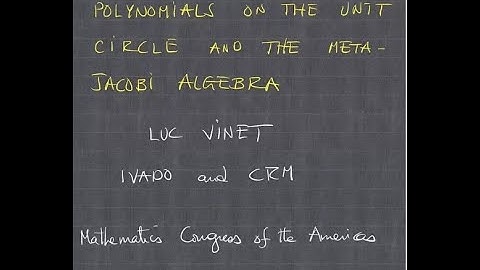 POLYNOMIALS ON THE UNIT
CIRCLE AND THE META-
JACOBI ALGEBRA
LUC VINET
IVADO and CRM
Mathematics Congress of the Americas